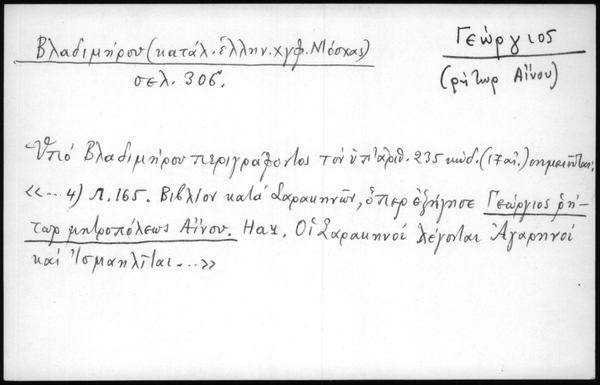 Βλαδιμήρου (κατάλ. ἑλλην. χγφ. Μόσχας)
σελ. 306.
Γεώργιος
(ρήτωρ Αἴνου)
Ὑπό Βλαδιμήρου περιγράφοντος τόν ὑπ' ἀριθ. 235 κώδ. (17 αἰ.) σημειοῦται:
«... 4) Л. 165. Βιβλίον κατά Σαρακηνῶν, ὅπερ ἐξήγησε Γεώργιος ῥή-
τωρ μητροπόλεως Αἴνου. Нач. Οἱ Σαρακηνοί λέγονται Ἀγαρηνοί
καί Ἰσμαηλῖται...»